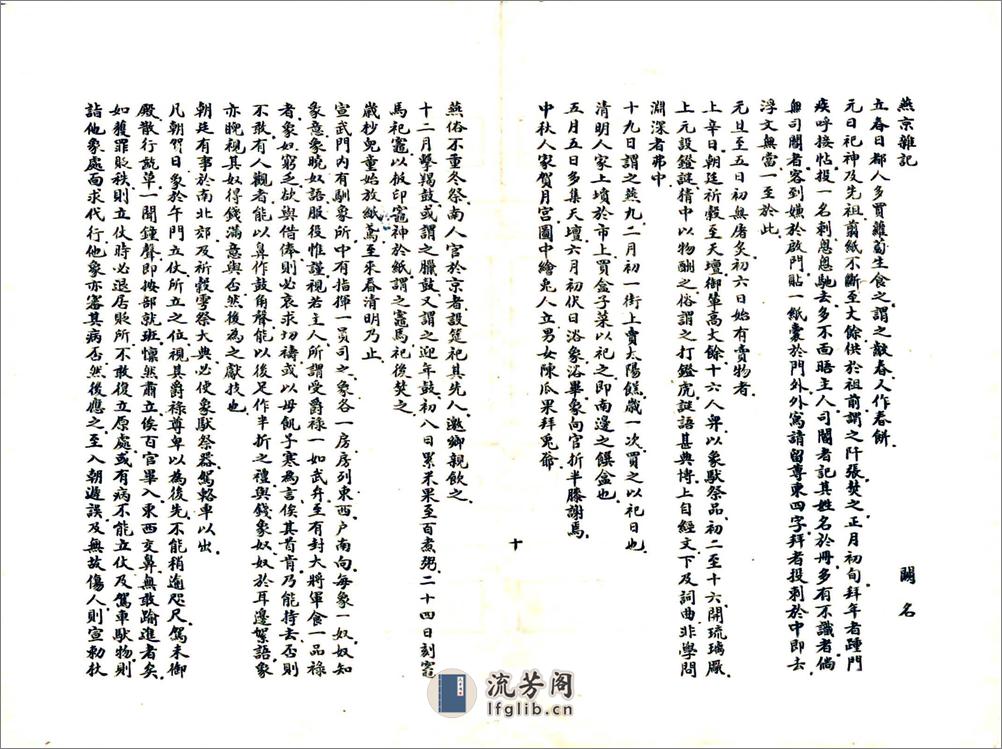 燕京雜記
闕名
立春日都人多買蘿蔔生食之謂之齩春人作春餅
元日祀神及先祖翦紙不斷至丈餘供於祖前謂之阡張焚之正月初旬拜年者踵門
疾呼接帖投一名刺悤悤馳去多不面晤主人司閽者記其姓名於冊多有不識者倘
無司閽者客到嬾於啟門貼一紙囊於門外外寫請留尊柬四字拜者投刺於中即去
浮文無當一至於此
元旦至五日初無屠炙初六日始有賣物者
上辛日朝廷祈穀至天壇御輦高丈餘十六人舁以象馱祭品初二至十六開琉璃厰
上元設鐙謎猜中以物酬之俗謂之打鐙虎謎語甚典博上自經文下及詞曲非學問
淵深者弗中
十九日謂之燕九二月初一街上賣太陽餻歲一次買之以祀日也
清明人家上墳於市上買盒子菜以祀之即南邊之饌盒也
五月五日多集天壇六月初伏日浴象浴畢象向官折半膝謝焉
中秋人家賀月宮圖中繪兎人立男女陳瓜果拜兎爺
十
燕俗不重冬祭南人宦於京者設筵祀其先人邀鄉親飲之
十二月擊羯鼓或謂之臘鼓又謂之迎年鼓初八日累米果至百煮粥二十四日刻竈
馬祀竈以板印竈神於紙謂之竈馬祀後焚之
歲杪兒童始放紙鳶至來春清明乃止
宣武門內有馴象所中有指揮一員司之象各一房房列東西户南向每象一奴奴知
象意象曉奴語服役惟謹視若主人所謂受爵祿一如武弁至有封大將軍食一品祿
者象如窮乏欲與借俸則必哀求切禱或以母飢子寒為言俟其首肯乃能持去否則
不敢有人觀者能以鼻作鼓角聲能以後足作半折之禮與錢象奴奴於耳邊絮語象
亦睨視其奴得錢滿意與否然後為之獻技也
朝廷有事於南北郊及祈穀雩祭大典必使象馱祭器駕輅車以出
凡朝賀日象於午門立仗所立之位視其爵祿尊卑以為後先不能稍逾咫尺駕未御
殿散行齕草一聞鐘聲即按部就班懍然肅立俟百官畢入東西交鼻無敢踰進者矣
如獲罪貶秩則立仗時必退居貶所不敢復立原處或有病不能立仗及駕車馱物則
詣他象處面求代行他象亦審其病否然後應之至入朝遲誤及無故傷人則宣勅杖
流芳阁
lfglib.cn